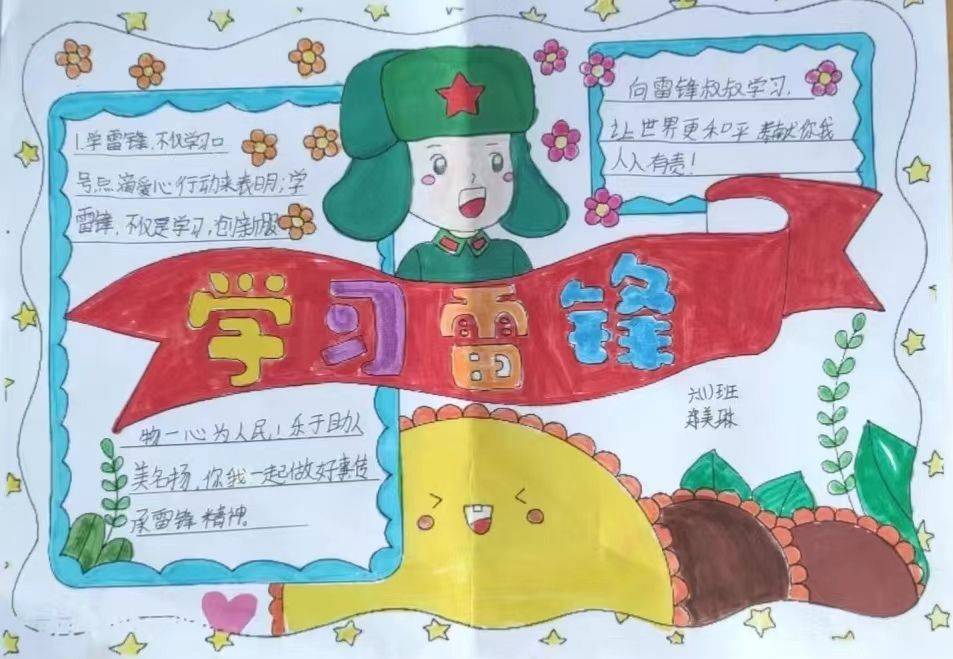 1.学雷锋,不仅学习口
号,点滴爱心行动来表明;学
雷锋,不仅是学习,创新服
学习雷锋
物一心为人民!乐于助人
美名扬,你我一起做好事传
承雷锋精神。
向雷锋叔叔学习,
让世界更和平 你我
人人有责!
班
郑美珠